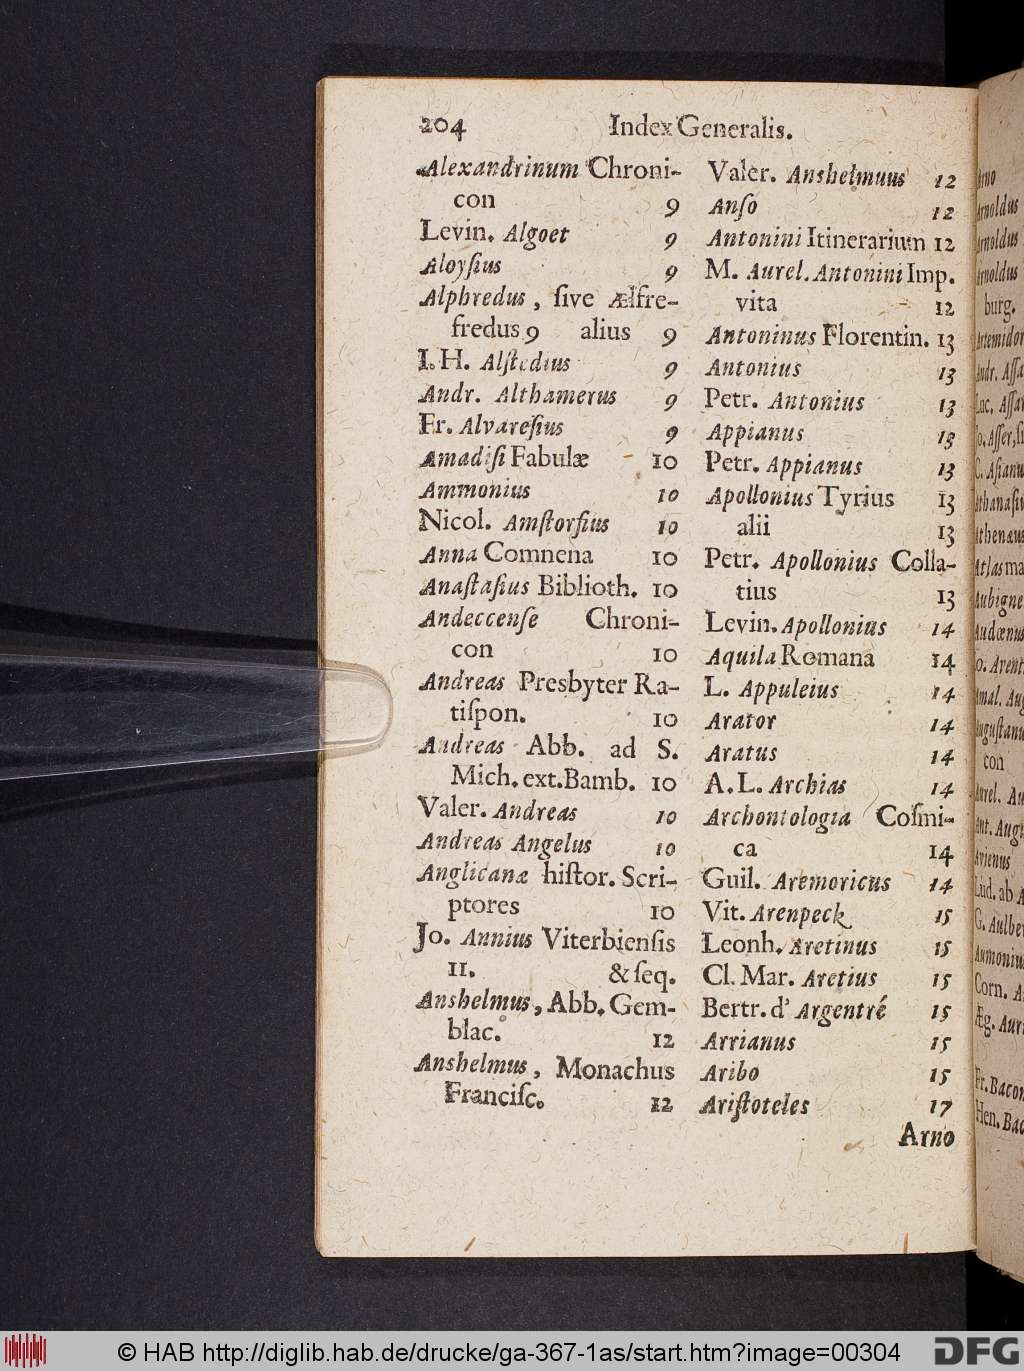 204 Index Generalis.
Alexandrinum Chroni-
con 9
Levin. Algoet 9
Aloyſius 9
Alphredus, ſive Ælfre-
fredus 9 alius 9
I. H. Alſtedius 9
Andr. Althamerus 9
Fr. Alvareſius 9
Amadiſi Fabulæ 10
Ammonius 10
Nicol. Amſtorfius 10
Anna Comnena 10
Anaſtaſius Biblioth. 10
Andeccenſe Chroni-
con 10
Andreas Presbyter Ra-
tiſpon. 10
Andreas Abb. ad S.
Mich. ext. Bamb. 10
Valer. Andreas 10
Andreas Angelus 10
Anglicanæ hiſtor. Scri-
ptores 10
Jo. Annius Viterbienſis
11. & ſeq.
Anshelmus, Abb. Gem-
blac. 12
Anshelmus, Monachus
Franciſc. 12
Valer. Anshelmuus 12
Anſo 12
Antonini Itinerarium 12
M. Aurel. Antonini Imp.
vita 12
Antoninus Florentin. 13
Antonius 13
Petr. Antonius 13
Appianus 13
Petr. Appianus 13
Apollonius Tyrius 13
alii 13
Petr. Apollonius Colla-
tius 13
Levin. Apollonius 14
Aquila Romana 14
L. Appuleius 14
Arator 14
Aratus 14
A. L. Archias 14
Archontologia Coſmi-
ca 14
Guil. Aremoricus 14
Vit. Arenpeck 15
Leonh. Aretinus 15
Cl. Mar. Aretius 15
Bertr. d' Argentré 15
Arrianus 15
Aribo 15
Ariſtoteles 17
Arno
Arno
Arnoldus
Arnoldus
Arnoldus
burg.
Andr.
Luc.
Athenæus
Atlas
con
Avienus
Lud. ab
Corn.
Fr. Bacon
Hen.
© HAB http://diglib.hab.de/drucke/ga-367-1as/start.htm?image=00304
DFG